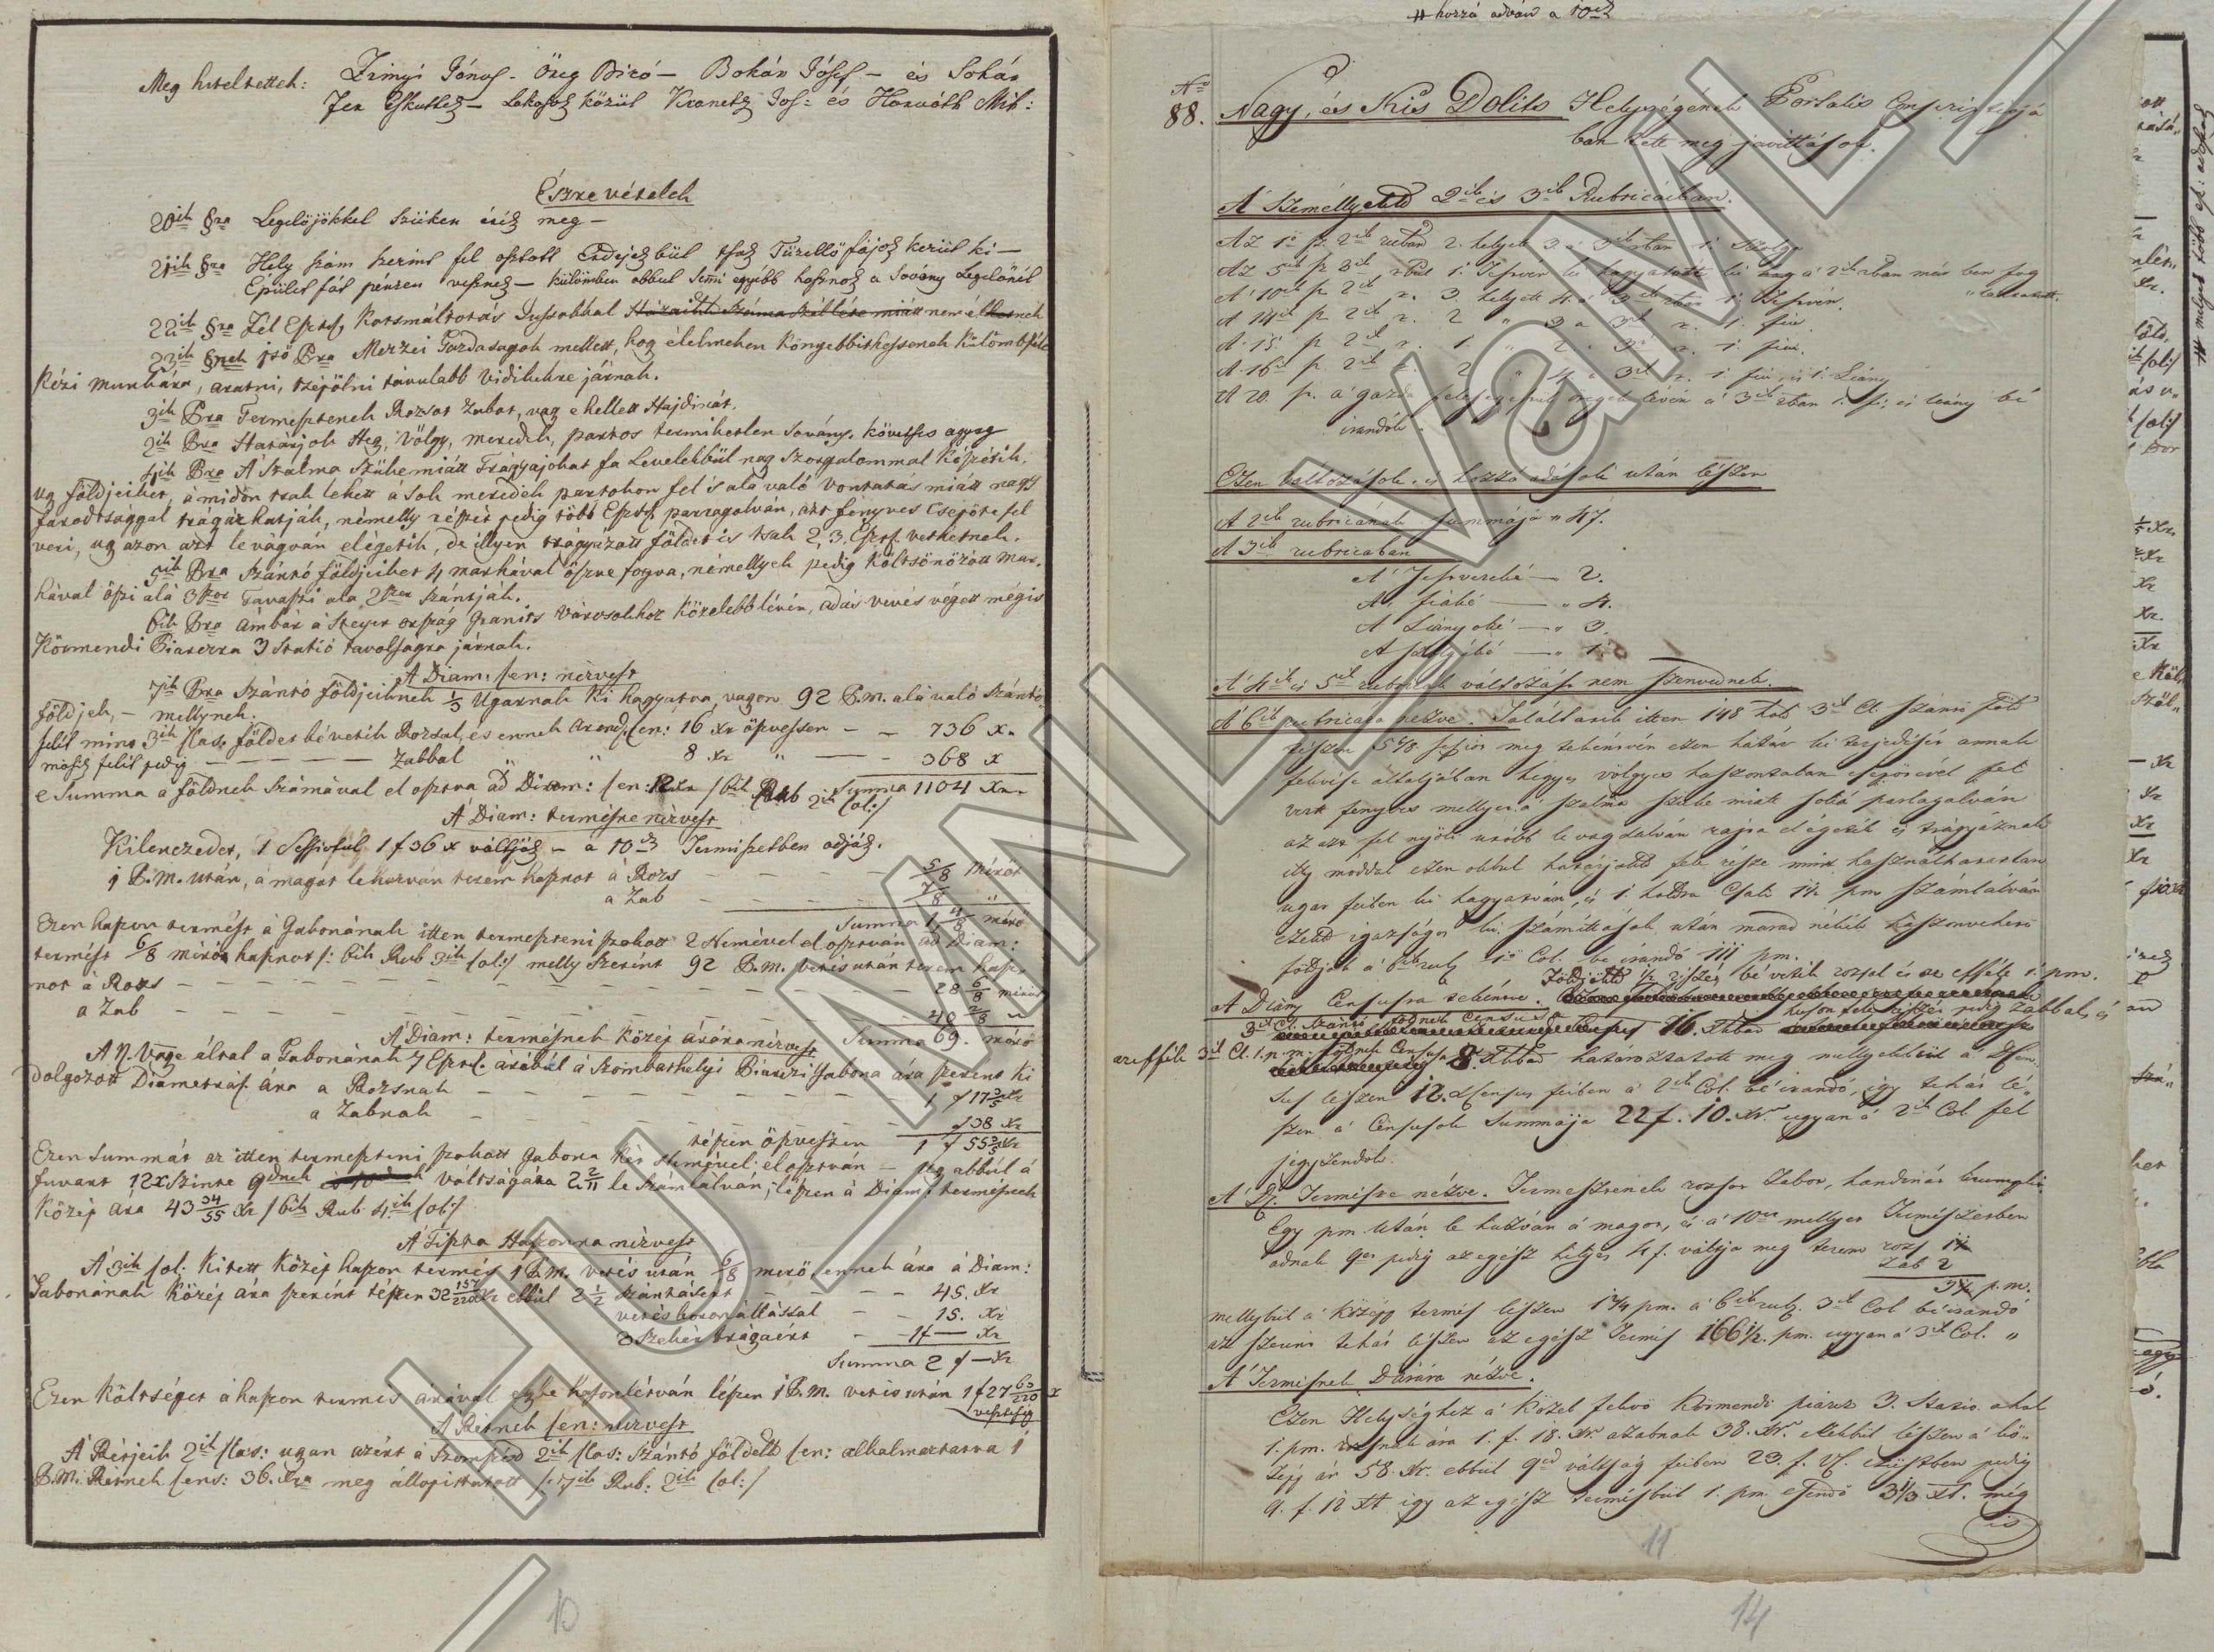 Meg hiteltettek: Zrinyi János - Öreg Biró - Bokán Jósef - és Sohár
Fer Eskuttek - Lakosok közül Kranetz Jos: és Horváth Mih:
Észre vételek
20ik §ra Legelőjökkel Szüken érik meg -
21ik §ra Hely szám szerint fel osztott Erdejekbül tsak Tüzellö fájok kerül ki -
Épület fát pénzen vesznek - különben abbul semi egyébb hasznok a Sovány Legelőnél
22ik §ra Fél Eszt. Kortsmáltatás Jussabbal
23ik §nek 1sö Pra Mezzei Gazdaságok mellett, hog élelmeken Könyebbithessenek Külömbféle
Kézi munkára, aratni, tséplöni távulabb Vidékekre járnak.
3ik Pra Termesztenek Rozsot Zabot, vag e hellett Hajdinát.
3ik Pra Határjok Heg, Völgy, meredek, partos termiketlen Sovány, követses agyag
4ik Pra A Szalma Szüke miátt Trágyájokat fa Levelekbül nag Szorgalommal Készétik,
ug földjeiket, a midön tsak lehett á Sok meredek partokon fel is alá való Vontatás miátt nagy
fáradtsággal trágyázhatják, némelly részét pedig több Eszt. parragolván, azt fenyves Csepöte fel
veri, ug azon azt levágván elégetik, de illyen trágyázatt földet is tsak 2, 3, Eszt. vethetnek.
5ik Pra Szántó földjeiket 4 marhával öszve fogva, némellyek pedig Költsönözött Mar-
hával öszi alá 3szor Tavaszi ala 2szer Szántják.
6ik Pra ámbár a Steyer ország Granits Városokhoz Közelebb lévén, adás vevés végett mégis
Körmendi Piaczra 3 Statió távolságra járnak.
A Diam: Cen: nézvést
7ik Pra Szántó földjeiknek 1/3 Ugarnak Ki hagyatva, vagon 92 P.M. alá való Szántó
földjek, - mellynek
felit mind 3ik Clas: földet bévetik Rozsal, és ennek Arend. Cen: 16 Xr öszvessen - - 736 x.
másik felit pedig - - - - Zabbal " 8 Xr " - - 368 x
Summa 1104 Xr.
e Summa a földnek Számával el osztva ad Diam: Cen: 12 Xr /: 6ik Rub 2ik Col:/
A Diam: termésre nézvést
Kilenczedet, 1 Sessiotul 1 f 36 x váltják - a 10ed Termiszetben adják.
1 P.M. után, a magot lehuzván terem hasznot á Rozs - - - 5/8 mérőt
a Zab - - - 7/8 "
Summa 1 4/8 mérő
Ezen haszon termést a Gabonának itten termeszteni szokott 2 Nemével el osztván ad Diam:
termést 6/8 mérőt hasznot /: 6ik Rub 3ik Col:/ melly Szerént 92 P.M. vetés után terem hasz-
not á Rozs - - - 28 6/8 mérőt
a Zab - - - 40 2/8 "
Summa 69. mérő
A Diam: termésnek közép árára nézvést
A N. Vrge által a Gabonának 7 Eszt. árábúl á Szombathelyi Piarczi Gabona ára szerint ki
dolgozott Diametrál. ára a Rozsnak - - - 1 f 17 3/5 Xr
a Zabnak - - - f 38 Xr
tészen öszvessen 1 f 55 3/5 Xr
Ezen Summát az itten termeszteni szokott Gabona két Nemével elosztván - ség abbúl á
fuvart 12x Szinte 9dnek váltságára 2 2/11 le Számlálván; lészen á Diam: termésnek
Közép ára 43 34/55 Xr /: 6ik Rub 4ik Col:/
A Tiszta Haszonra nézvest
A 3ik Col: Kitett Közép haszon termés 1 P.M. vetés után 6/8 mérö ennek ára á Diam:
Gabonának Közép ára szerént tészen 32 157/220 Xr ebbül 2 1/2 Szántásért - - 45. Xr
vetés boronállással - - 15. Xr
3 Szekér trágyáért - - 1f - Xr
Summa 2 f - Xr
Ezen költséget a haszon termés árával egybe hasonlétván lészen 1 P.M. vetés után 1 f 27 63/220 x
veszteség
A Rétnek Cen: nézvest
A Rétjeik 2ik Clas: ugan azért a Szomszéd 2ik Clas: szántó földekk Cen: alkalmaztatva 1
P.M. Rétnek Cens: 36. Xra meg állopittatott /: 7ik Rub: 2ik Col:/
10
# hozzá adván a 10ed
No
88. Nagy, és Kis Dolits Helységének Portalis Conscriptiojá
ban tett meg javittások.
A Szemellyekk 2ik és 3ik Rubricaiban.
Az 1ő sz. 2ik rubban 2. helyett 3 a 3ik rban 1. Szolga
Az 5ik sz 3ik rbúl 1. Testvér ki hagyatott ki hag a 2ik rban már ben fog
"laltatott.
A 10ik sz 2ik r. 3. helyett 4. a 3ik rban 1. Testvér.
A 14ik sz 2ik r. 2 " 3 a 3ik r. 1. fiu.
A 15. sz 2ik r. 1 " 2 a 3ik r. 1. fiu.
A 16ik sz. 2ik r. 2 " 4 a 3ik r. 1 fiu, és 1. Leány
A 20. sz. a gazda feleségestül öregek lévén a 3ik rban 1. fi, és leány bé
irandók.
Ezen változások, és hozzá adások után lészen
A 2ik rubricának summája " 47.
A 3ik rubricaban
A Testvereké - 2.
A fiaké - " 4.
A Leányoké - " 3.
A szolgáké - " 1.
A 4ik és 5ik rubricák változást nem szenvednek.
A 6ik rubricára nézve. Találtatik itten 148 hold 3ik Cl. szántó föld
tészen 5 5/8 sessiot meg tekéntvén ezen határ ki terjedését annak
fekvése általjában hegyes völgyes haszontalan csepötével fel
vert fenyves mellyen a szalma szüke miatt soká parlagolván
az azt fel nyöli utóbb le vagdalván rajta el égetik és trágyáznak
ily moddal ezen okbul határjokk fele része mint használhatatlan
ugar feiben ki hagyatván, és 1. holdra Csak 1 1/2 pm számlálván
ezekk igazságos ki számittások után marad nékik haszonvehető
földjök a 6ik rub 1ö Col. be irandó 111 pm.
Földjökk 1/2 részét bévetik rozsal és az efféle 1. pm.
A Diam Censusra tekéntve.
hason fele részét pedig Zabbal, és
3ik Cl. Szántó földnek Censusa 16. Xrban
azefféle 3ik Cl. 1. p.m. földnek Censusa 8. Xrban határoztatott meg mellyekbül a D. Cen-
sus lészen 12. D Census feiben a 2ik Col. bé irandó, igy tehát lé-
szen a Censusok Summája 22 f. 10. Xr ugyan a 2ik Col fel
jegyzendök.
A D. Termésre nézve. Termesztenek rozsot Zabot, handinát krumplit
Egy pm. után le huzván a magot, és a 10et mellyet Termésszetben
adnak 9et pedig az egész helység 4 f. váltja meg terem rozs 1 1/4
Zab 2
3 1/4 p.m.
mellybül a középp termés lészen 1 3/4 pm. a 6ik rub. 3ik Col béirandó
az szerint tehát lészen az egész Termés 166 1/2. pm. ugyan a 3ik Col. "
A Termésnek Dárára nézve.
Ezen Helységhez a közel fekvö Körmendi piarcz 3. Statio. ahol
1. pm. rozsnak ára 1. f. 18. Xr a zabnak 38. Xr. ezekbül lészen a kö-
zepp ár 58. Xr. ebbül 9ed váltság feiben 23. f. Vf. ezüstben pedig
9. f. 12 Xr igy az egész termésbül 1. pm. esendö 3 1/3 Xr. még
is
11
14